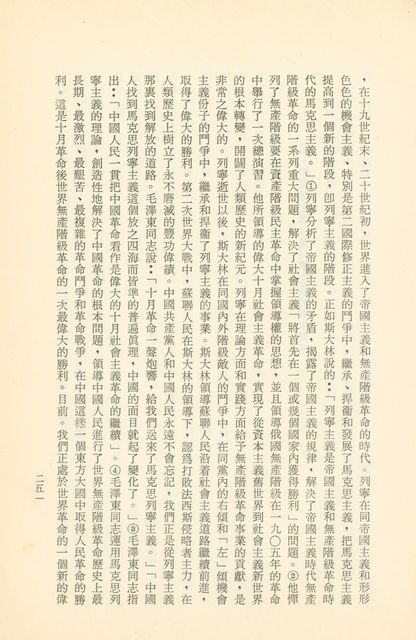 ，在十九世紀末、二十世紀初，世界進入了帝國主義和無產階級革命的時代。列寧在同帝國主義和形形
色色的機會主義、特別是第二國際修正主義的鬥爭中，繼承、捍衞和發展了馬克思主義，把馬克思主義
提高到一個新的階段，卽列寧主義的階段。正如斯大林說的：「列寧主義是帝國主義和無產階級革命時
代的馬克思主義。」①列寧分析了帝國主義的矛盾，揭露了帝國主義的規律，解決了帝國主義時代無產
階級革命的一系列重大問題，解決了社會主義「將首先在一個或幾個國家內獲得勝利」的問題。②他闡
列了無產階級要在資產階級民主革命中掌握領導權的思想，並且領導俄國無產階級在一九〇五年的革命
中舉行了一次總演習。他所領導的偉大十月社會主義革命，實現了從資本主義舊世界到社會主義新世界
的根本轉變，開闢了人類歷史的新紀元。列寧在理論方面和實踐方面給予無產階級革命事業的貢獻，是
非常之偉大的。列寧逝世以後，斯大林在同國內外階級敵人的鬥爭中，在同黨內的右傾和「左」傾機會
主義份子的鬥爭中，繼承和捍衞了列寧主義的事業。斯大林領導蘇聯人民沿着社會主義道路繼續前進，
取得了偉大的勝利。第二次世界大戰中，蘇聯人民在斯大林的領導下，認爲打敗法西斯侵略者主力，在
人類歷史上樹立了永不磨滅的豐功偉績。中國共產黨人和中國人民永遠不會忘記，我們正是從列寧主義
那裏找到解放的道路。毛澤東同志說：「十月革命一聲炮響，給我們送來了馬克思列寧主義。」「中國
人找到馬克思列寧主義這個放之四海而皆準的普遍眞理，中國的面目就起了變化了。」③毛澤東同志指
出：「中國人民一貫把中國革命看作是偉大的十月社會主義革命的繼續」。④毛澤東同志運用馬克思列
寧主義的理論，創造性地解決了中國革命的根本問題，領導中國人民進行了世界無產階級革命歷史上最
長期、最激烈、最艱苦、最複雜的革命鬥爭和革命戰爭，在中國這樣一個東方大國中取得人民革命的勝
利。這是十月革命後世界無產階級革命的一次最偉大的勝利。目前。我們正處於世界革命的一個新的偉
二五一